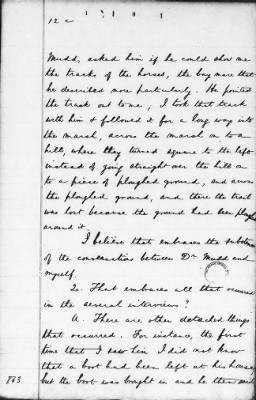 12 a
Mudd, asked him if he could show me
the tracks of the horses, the bay mare that
he described more particularly. He pointed
the track out to me, I took that track
with him & followed it for a long way into
the marsh, across the marsh on to a
hill, where they turned square to the left
instead of going straight over the hill on
to a piece of ploughed ground, and across
the ploughed ground, and there the trail
was lost because the ground had been ploughed
around it.
I believe that embraces the substance
of the conversation between Dr Mudd and
myself.
Q. That embraces all that occurred
in the several interviews?
A. There are other detached things
that occurred. For instance, the first
time that I saw him I did not know
that a boot had been left at his house,
but the boot was bought in and he then said
883